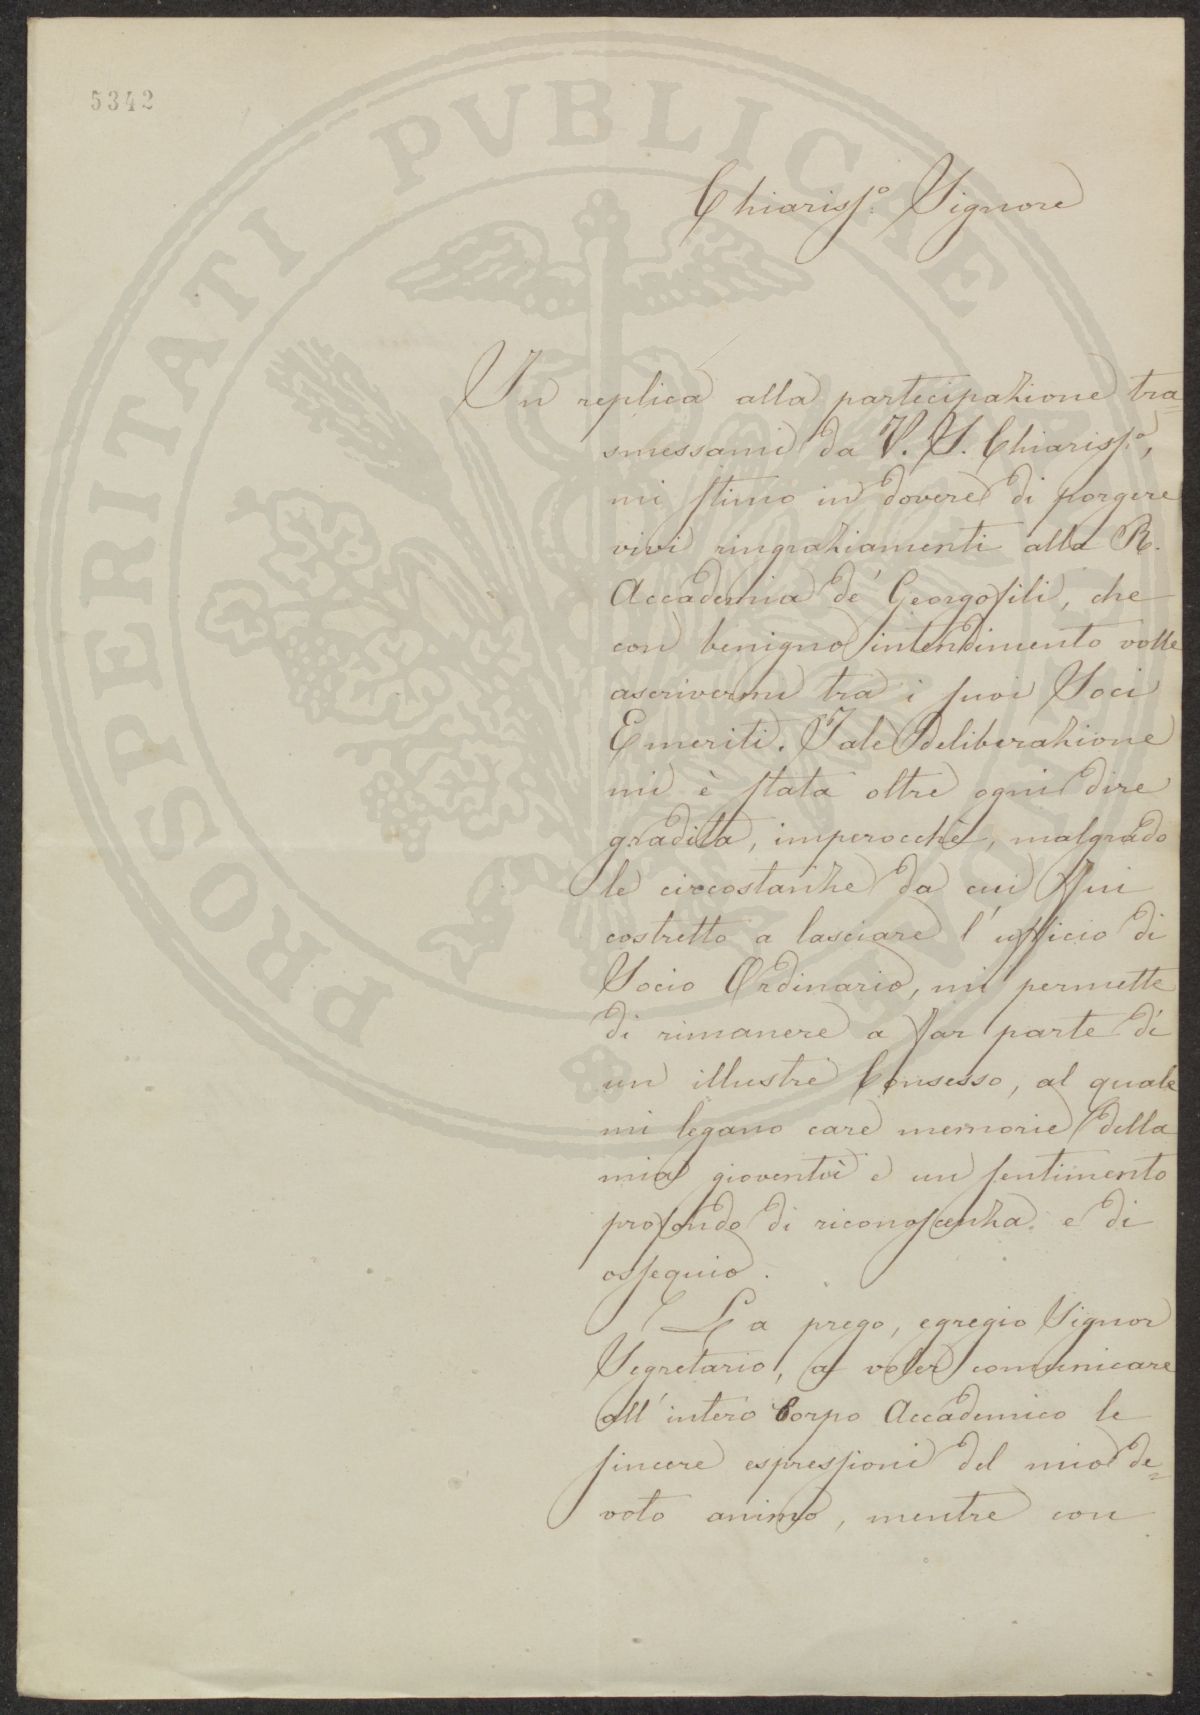 5342
PROSPERITATI PVBLICAE
Chiariss.º Signore
In replica alla partecipazione tra=
smessami da V. S. Chiariss.º,
mi stimo in dovere di porgere
vivi ringraziamenti alla R.
Accademia de' Georgofili, che
con benigno intendimento volle
ascrivermi tra i suoi Soci
Emeriti. Tale deliberazione
mi è stata oltre ogni dire
gradita, imperocchè, malgrado
le circostanze da cui fui
costretto a lasciare l'ufficio di
Socio Ordinario, mi permette
di rimanere a far parte di
un illustre Consesso, al quale
mi legano care memorie della
mia gioventù e un sentimento
profondo di riconoscenza e di
ossequio.
La prego, egregio Signor
Segretario, a voler comunicare
all'intero Corpo Accademico le
sincere espressioni del mio de=
voto animo, mentre con